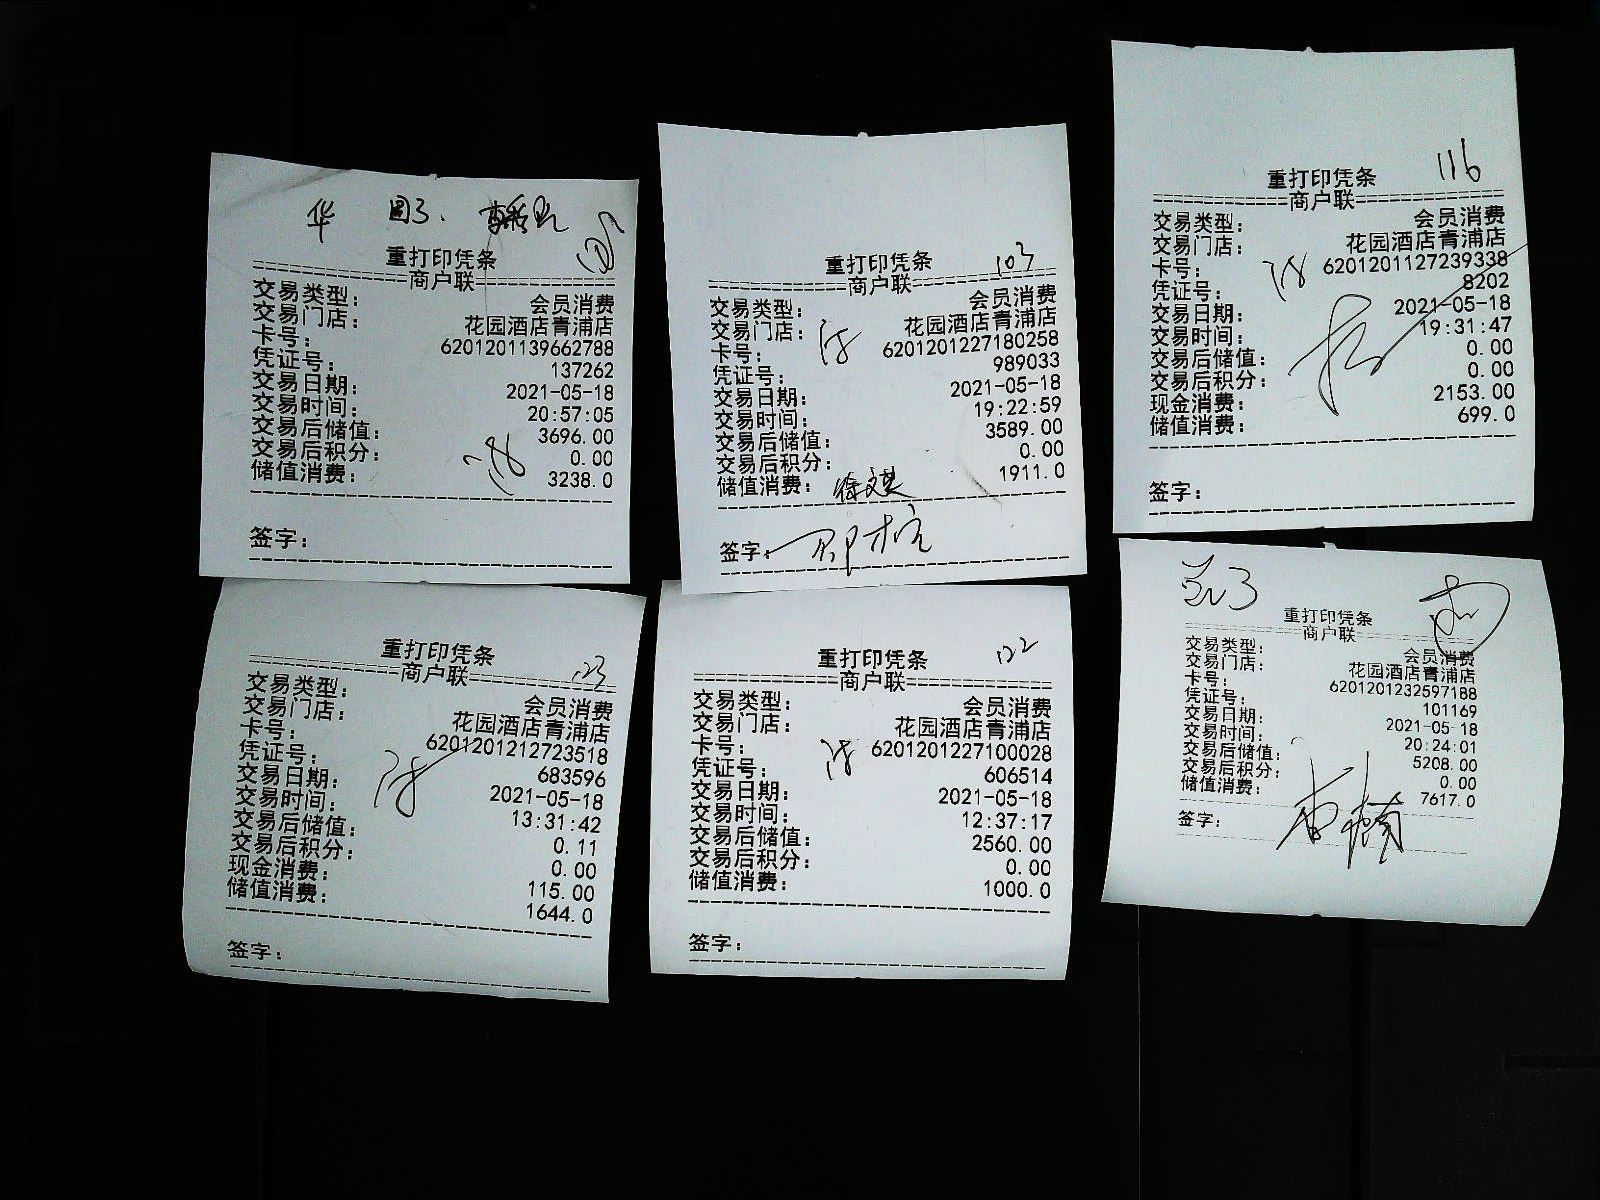 华 国3.
重打印凭条
商户联
交易类型: 会员消费
交易门店: 花园酒店青浦店
卡号: 6201201139662788
凭证号: 137262
交易日期: 2021-05-18
交易时间: 20:57:05
交易后储值: 3696.00
交易后积分: 0.00
储值消费: 3238.0
签字:
103
重打印凭条
商户联
交易类型: 会员消费
交易门店: 花园酒店青浦店
卡号: 6201201227180258
凭证号: 989033
交易日期: 2021-05-18
交易时间: 19:22:59
交易后储值: 3589.00
交易后积分: 0.00
储值消费: 1911.0
签字:
116
重打印凭条
商户联
交易类型: 会员消费
交易门店: 花园酒店青浦店
卡号: 6201201127239338
凭证号: 8202
交易日期: 2021-05-18
交易时间: 19:31:47
交易后储值: 0.00
交易后积分: 0.00
现金消费: 2153.00
储值消费: 699.0
签字:
重打印凭条
123
商户联
交易类型: 会员消费
交易门店: 花园酒店青浦店
卡号: 6201201212723518
凭证号: 683596
交易日期: 2021-05-18
交易时间: 13:31:42
交易后储值: 0.11
交易后积分: 0.00
现金消费: 115.00
储值消费: 1644.0
签字:
122
重打印凭条
商户联
交易类型: 会员消费
交易门店: 花园酒店青浦店
卡号: 6201201227100028
凭证号: 606514
交易日期: 2021-05-18
交易时间: 12:37:17
交易后储值: 2560.00
交易后积分: 0.00
储值消费: 1000.0
签字:
重打印凭条
商户联
交易类型: 会员消费
交易门店: 花园酒店青浦店
卡号: 6201201232597188
凭证号: 101169
交易日期: 2021-05-18
交易时间: 20:24:01
交易后储值: 5208.00
交易后积分: 0.00
储值消费: 7617.0
签字: